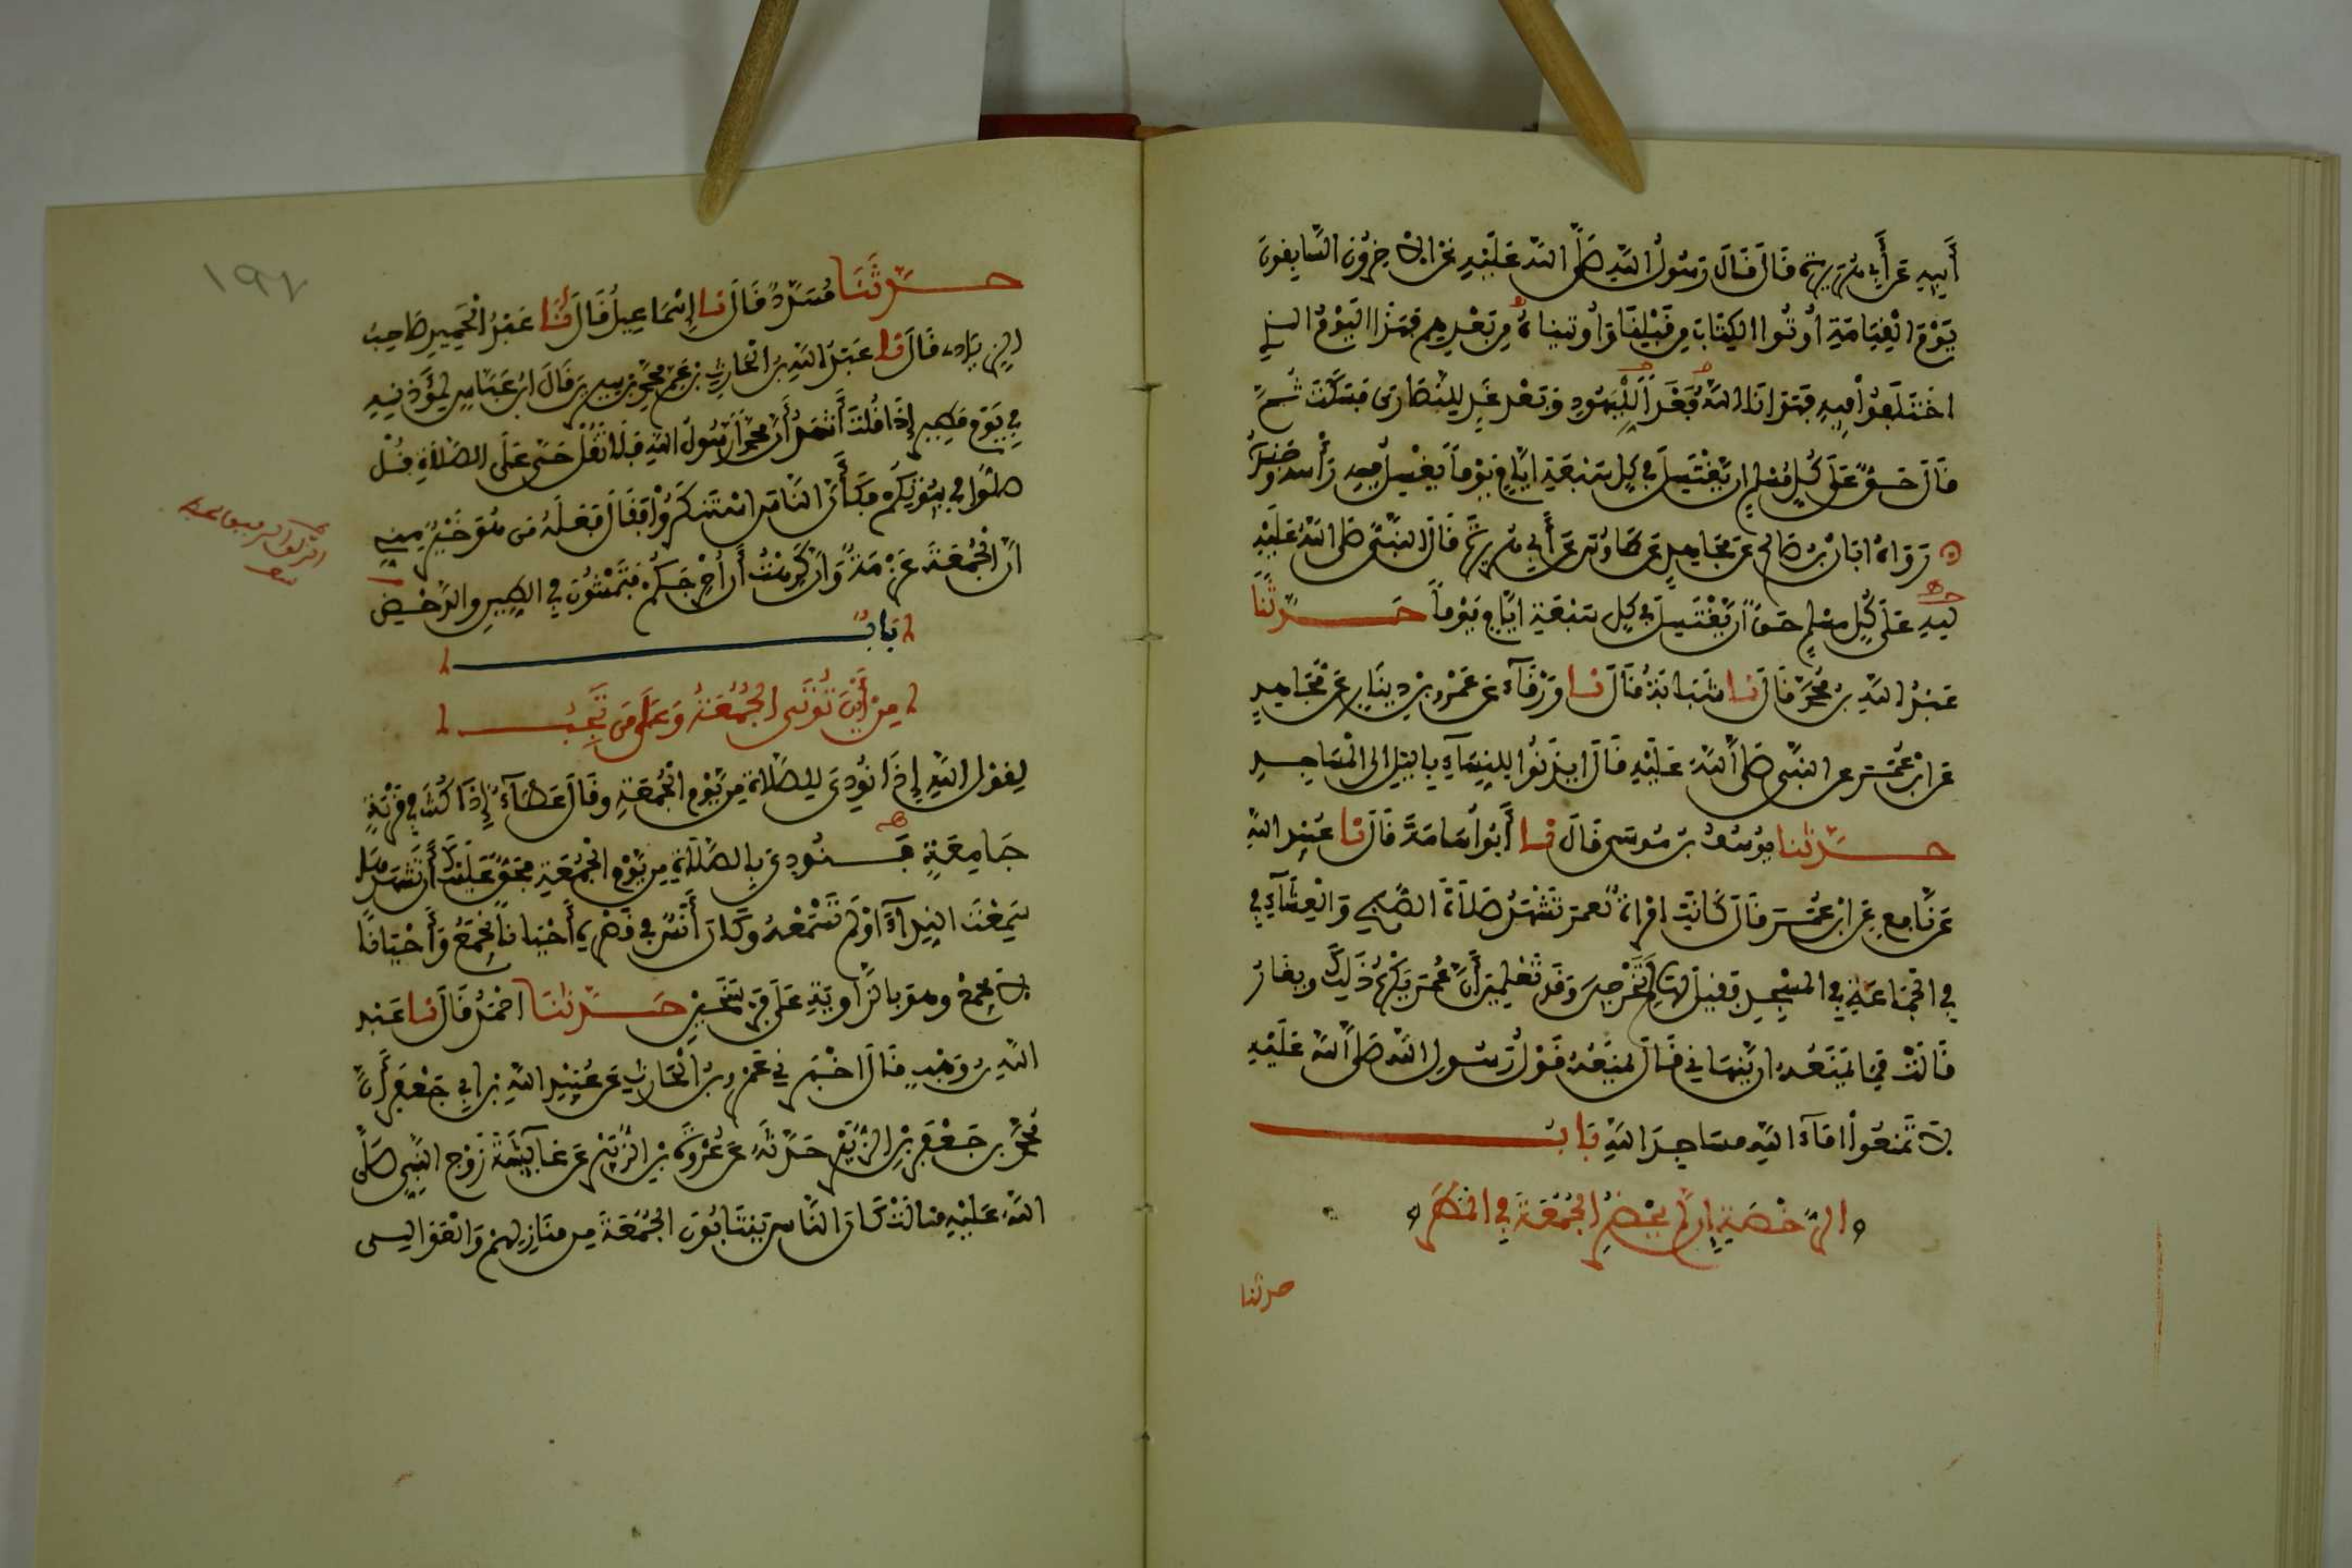 أَبِيهِ عَنْ أَبِي هُرَيْرَة قَالَ قَالَ رَسُولُ اللَّهِ صَلَّى اللَّه عَلَيْهِ نَحْنُ الاخِرُونَ السَّابِقُونَ
يَوْمَ الْقِيَامَةِ أُوتُوا الكِتَابَ مِن قَبْلِنَا وَأُوتِينَاهُ مِن بَعْدِهِم فَهَذَا اليَوْمُ الذِي
اخْتَلَفُوا فِيهِ فَهَدَانَا اللَّهُ فَغَداً لِلْيَهُودِ وَبَعْدَ غَدٍ لِلنَّصَارَى فَسَكَتَ ثُمَّ
قَالَ حَقٌّ عَلَى كُلِّ مُسْلِمٍ ان يَغْتَسِلَ فِي كُلِّ سَبْعَةِ ايَّامٍ يَوْماً يَغْسِلُ فِيهِ رَأْسَه وَجَسَدَهُ
رَوَاهُ ابَانُ بْنُ صَالِحٍ عَن مُجَاهِدٍ عَن طَاوُسٍ عَن أَبِي هُرَيْرَة قَالَ النَّبِيُّ صَلَّى اللَّهُ عَلَيْهِ
لِلهِ عَلَى كُلِّ مسْلِمٍ حَقٌّ أَن يَغْتَسِلَ فِي كُلِّ سَبْعَةِ ايَّامٍ يَوْماً حَدَّثَنَا
عَبْدُ اللَّهِ بْنُ مُحَمَّد قَالَ نا شَبَابَةُ قَالَ نا وَرْقَآءُ عَن عَمْرِو بْنِ دِينَارٍ عَن مُجَاهِدٍ
عَن ابْنِ عُمَر عن النَّبِي صَلَّى اللَّهُ عَلَيْهِ قَالَ ايذَنُوا لِلنِّسَآءِ بِالليْلِ الى الْمَسَاجِدِ
حدَّثنا يُوسُفُ بن مُوسَى قَالَ نا أَبُو أُسَامَةَ قَالَ نا عُبَيْد اللَّهِ
عَن نَافِعٍ عَن ابْنِ عُمَرَ قَالَ كَانَتِ امْرَأَةٌ لعمَرَ تَشْهَدُ صَلَاةَ الصُّبْحِ وَالْعِشَآءِ فِي
فِي الْجَمَاعَةِ فِي المَسْجِدِ فَقِيلَ لَهَا لِمَ تَخْرُجِينَ وَقَد تَعْلَمِينَ أَنَّ عُمَرَ يَكْرَهُ ذَلِكَ وَيَغَارُ
قَالَتْ فَمَا يَمْنَعُه ان يَنْهَانِي قَالَ يَمْنَعُهُ قَوْلُ رَسُولِ اللَّه صَلَّى اللَّهُ عَلَيْهِ
لا تَمْنَعُوا امَآءَ اللَّه مسَاجِدَ اللَّهِ بَاب
الرُّخْصَةِ إِن لَّمْ يَحْضُرِ الجُمُعَةَ فِي المَطَرِ
حدثنا
١٩٧
حدَّثَنَا مُسَدَّدٌ قَالَ نا إِسْمَاعِيلُ قَالَ أَنَا عَبْدُ الْحَمِيدِ صَاحِبُ
الزِّيَادِي قَالَ نا عَبْدُ اللَّهِ بْنُ الْحَارِثِ بْن عَمِّ مُحَمَّدِ بْنِ سِيرِينَ قَالَ ابْنُ عَبَّاسٍ لِمُؤَذِّنِهِ
فِي يَوْمٍ مَطِيرٍ إِذَا قُلْتَ أَشْهَدُ أَنَّ مُحَمَّداً رَسُولُ اللَّهِ فَلَا تَقُلْ حَيَّ عَلَى الصَّلَاةِ قُلْ
صَلُّوا فِي بُيُوتِكُمْ فَكَأَنَّ النَّاسَ اسْتَنْكَرُوا فَقَالَ فَعَلَهُ مَن هُوَ خَيْرٌ مِنِّي
انَّ الْجُمُعَةَ عَزْمَةٌ وَإِنِّي كَرِهْتُ أَن أُحْرِجَكُمْ فَتَمْشُونَ فِي الطِّينِ وَالدَّحْضِ
بَابٌ
مِنْ أَيْنَ تُوتَى الجُمُعَةُ وَعَلَى مَن تَجِبُ
لِقَوْلِ اللَّهِ إِذَا نُودِيَ لِلصَّلَاةِ مِن يَوْمِ الْجُمُعَةِ وقَالَ عَطَآءٌ إِذَا كُنْتَ فِي قَرْيَةٍ
جَامِعَةٍ فَنُودِيَ بِالصَّلَاةِ مِن يَوْمِ الْجُمُعَةِ فَحَقٌّ عَلَيْكَ أَن تَشْهَدَهَا
سَمِعْتَ النِّدَآءَ اوْ لَمْ تَسْمَعْهُ وَكَانَ أَنَسٌ فِي قَصْرِهِ أَحْيَاناً يُجَمِّعُ وَأَحْيَانًا
لا يُجَمِّعُ وهو بالزَّاوِيَةِ عَلَى فَرْسَخَيْنِ حَدَّثَنَا احْمَدُ قَالَ نا عَبْد
اللَّهِ بن وَهْبٍ قَالَ اخْبَرَنِي عَمْرُو بْنُ الْحَارِثِ عَن عُبَيْدِ اللَّهِ بْنِ ابِي جَعْفَرٍ أَنَّ
مُحَمَّدَ بنَ جَعْفَرِ بْنِ الزُّبَيْرِ حَدَّثَهُ عَن عُرْوَةَ بْنِ الزُّبَيْرِ عَن عَآيِشَةَ زَوْجِ النَّبِيِّ صَلَّى
اللَّهُ عَلَيْهِ قالَتْ كَانَ النَّاسُ يَنْتَابُونَ الجُمُعَةَ مِن مَنَازِلِهِمْ وَالْعَوَالِي